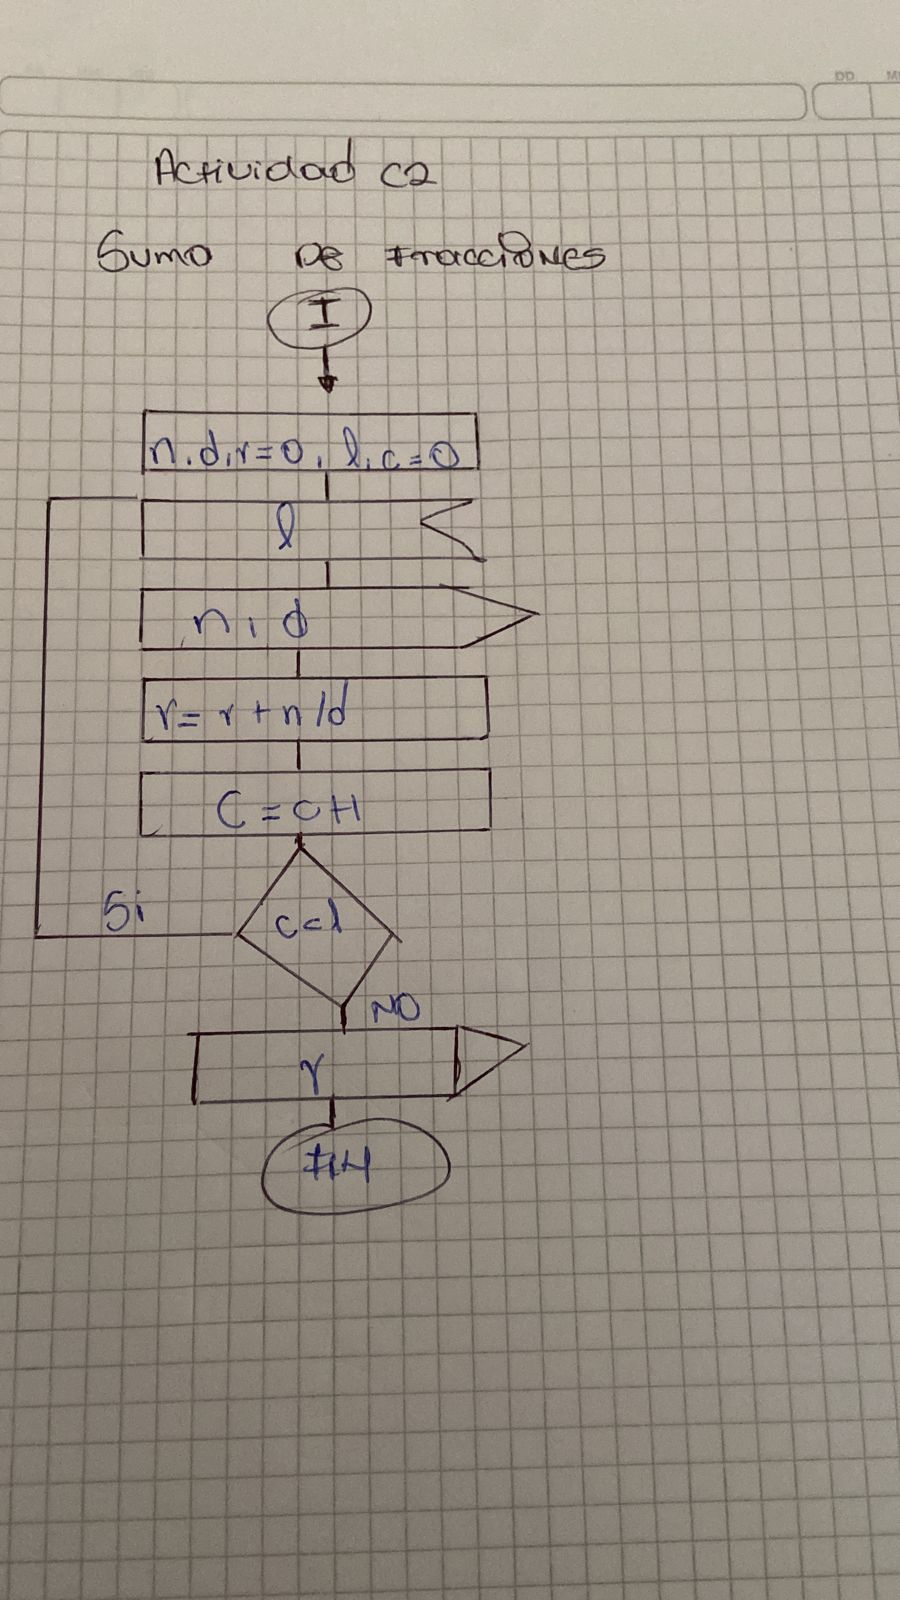 DD
Actividad C2
Suma DE Fracciones
I
n,d,r=0, l,c=0
l
n, d
r= r+n/d
C=c+1
Si
c=l
NO
r
FIN